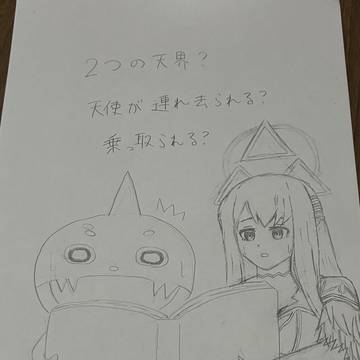 2つの天界?
天使が連れ去られる?
乗っ取られる?